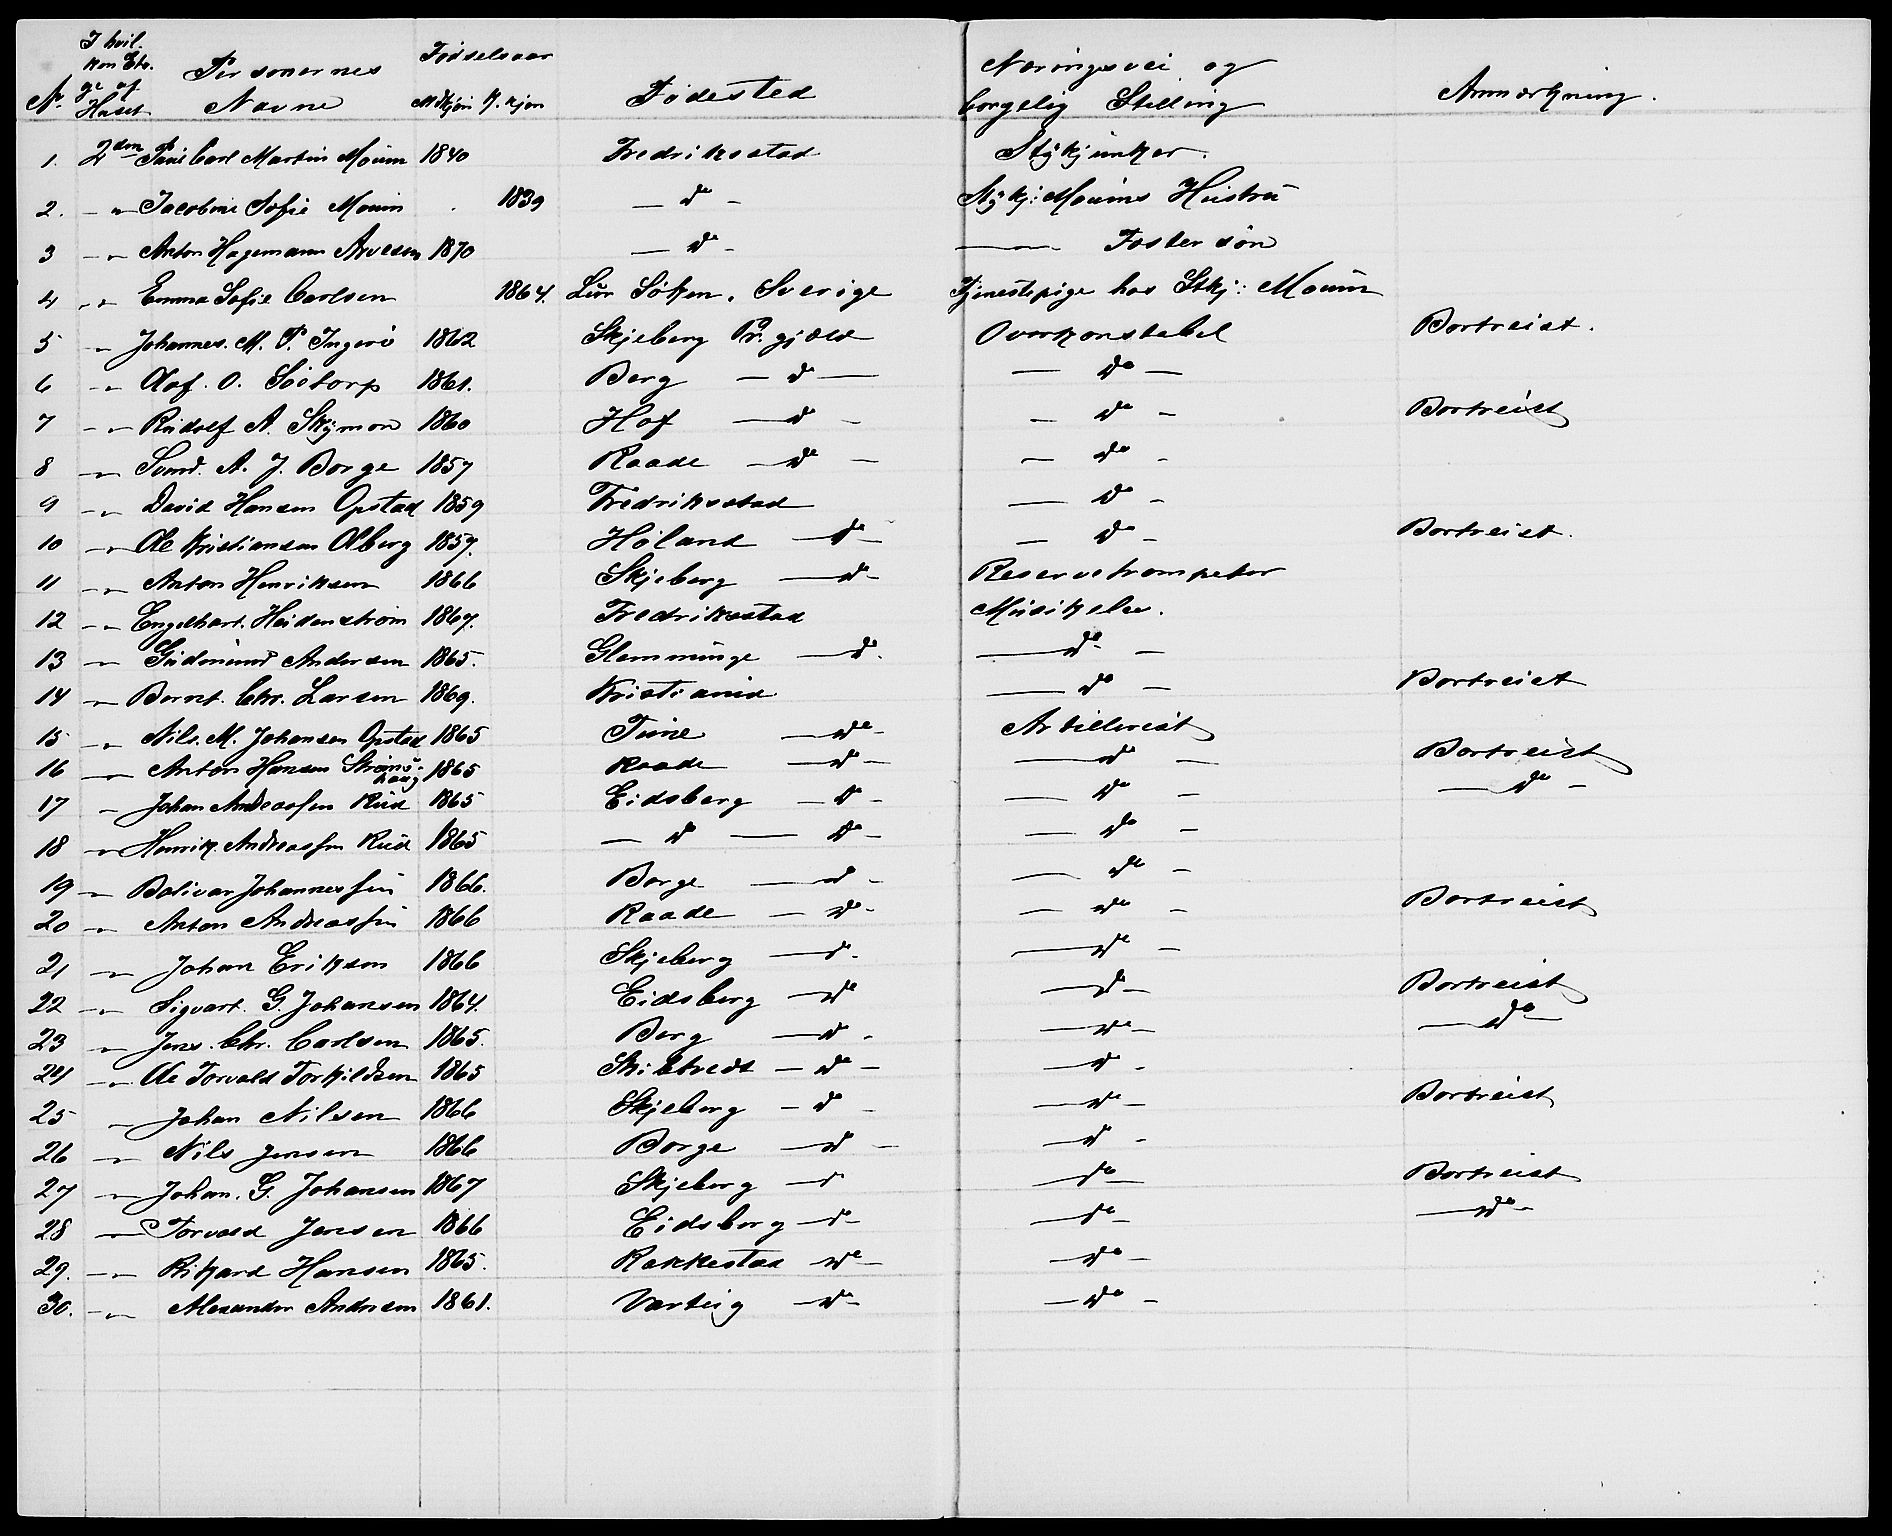 No. I hvilken Etage af Huset Personernes Navne Fødselsaar M.kjøn K.kjøn Fødested Næringsvei og borgelig Stilling Anmærkning.
1. 2den Carl Martin Moum 1840 Fredriksstad Stykjunker.
2. -"- Jacobine Sofie Moum 1839 — do - Stykj: Moums Hustru
3 -"- Anton Hagemann Arvesen 1870 — do - —"— Fostersøn
4 -"- Emma Sofie Carlsen 1864. Lur Soken, Sverige Tjenestepige hos Stkj: Moum
5 -"- Johannes. M. P. Ingerö 1862 Skjeberg Pr. gjæld Overkonstabel Bortreist.
6 -"- Olaf. O. 1861. Berg — do — — do —
7 -"- Rudolf A. 1860 Hof — do - — do - Bortreist
8 -"- Svend. A. J. Borge 1857 Raade — do - — do -
9 -"- David Hansen Opstad 1859 Fredriksstad — do -
10 -"- Ole Kristiansen Olberg 1857. Høland — do - — do - Bortreist.
11 -"- Anton Henriksen 1866 Skjeberg — do - Reservetrompeter
12 -"- Engelhart. Heidenstrøm 1867. Fredriksstad Musikelev.
13 -"- Gudmund Andersen 1865. Glemminge — do. — do -
14 -"- Bernt. Chr. Larsen 1869. Kristiania — do - Bortreist
15 -"- Nils. M. Johansen Opstad 1865 Tune — do - Artillerist
16 -"- Anton Hansen Strømshaug 1865 Raade — do - — do - Bortreist
17 -"- Johan Andreassen Rud 1865 Eidsberg — do - — do - — do -
18 -"- Henrik. Andreassen Rud 1865 — do — do - — do -
19 -"- Bolivar Johannessen 1866. Borge — do - — do -
20 -"- Anton Andreassen 1866 Raade — do - — do - Bortreist
21 -"- Johan Eriksen 1866 Skjeberg — do - — do -
22 -"- Sigvart. G. Johansen 1864. Eidsberg — do — do - Bortreist
23 -"- Jens. Chr. Carlsen 1865. Berg — do - — do - — do —
24 -"- Ole Torvald Torkildsen 1865 Skibtvedt — do - — do -
25 -"- Johan Nilsen 1866 Skjeberg — do - — do - Bortreist
26 -"- Nils Jensen 1866 Borge — do - — do -
27 -"- Johan. G. Johansen 1867 Skjeberg — do — do - Bortreist
28 -"- Torvald Jensen 1866 Eidsberg — do - — do - — do -
29. -"- Rikard Hansen 1865. Rakkestad — do - — do -
30. -"- Alexander Andresen 1861. Varteig — do - — do -